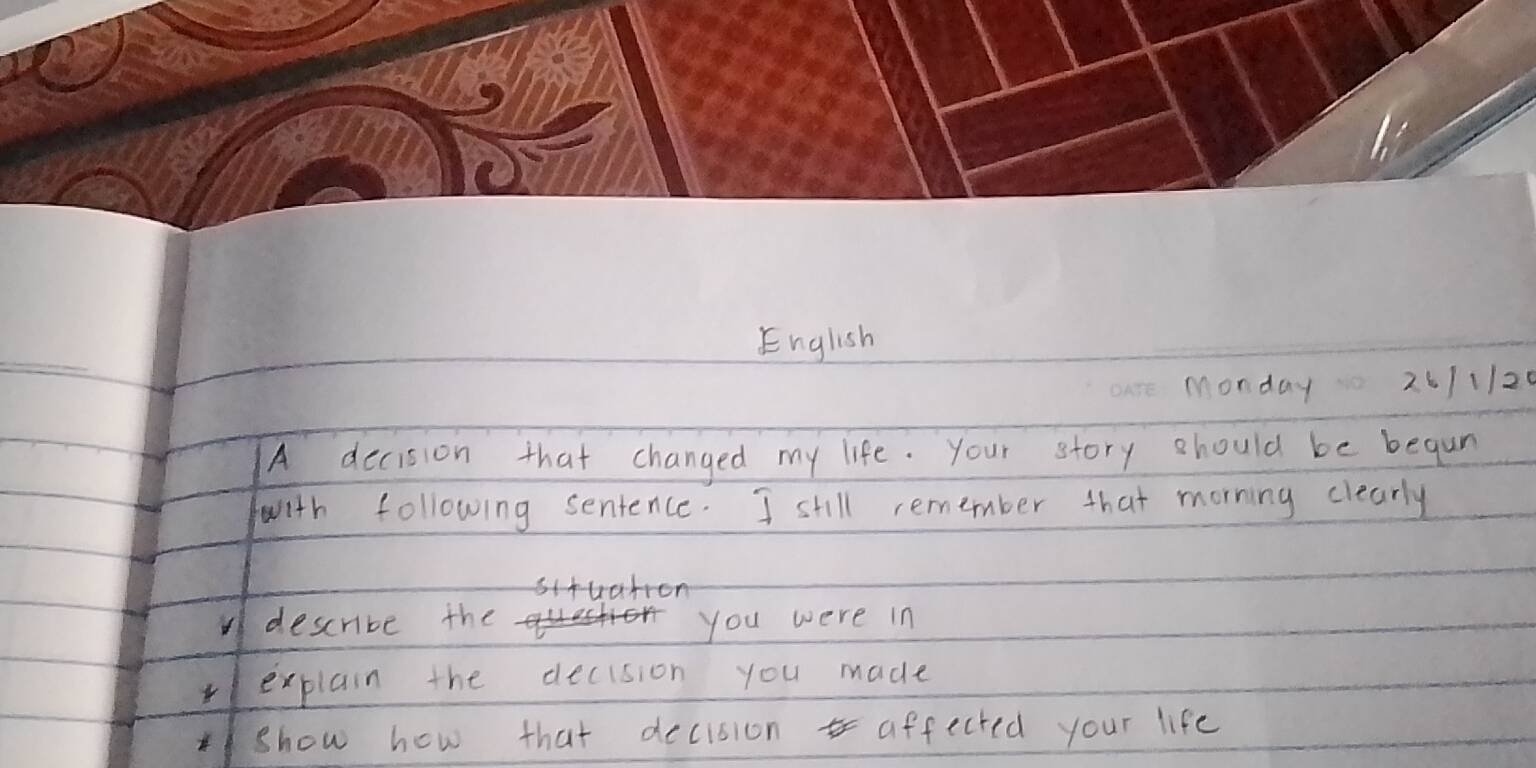 English
DATE Monday NO 26/1/20
A decision that changed my life. Your story should be begun
with following sentence. I still remember that morning clearly
situation
describe the question you were in
explain the decision you made
show how that decision affected your life